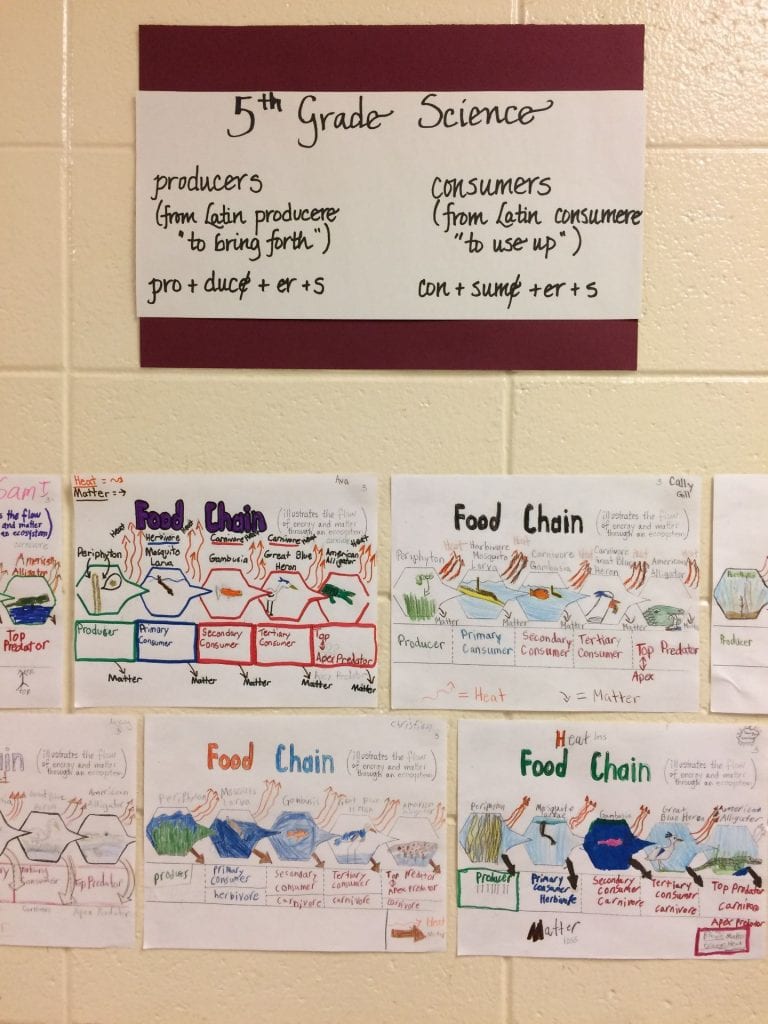 5th Grade Science
producers
(from Latin producere
"to bring forth")
pro + duce + er + s
consumers
(from Latin consumere
"to use up")
con + sume + er + s
Sam I
3
the flow
and matter
an ecosystem)
American
Alligator
Top
Predator
Heat =
Matter = →
Ava
3
Food Chain
(illustrates the flow
of energy and matter
through an ecosystem)
Periphyton
Heat
Herbivore
Mosquito
Larva
Heat
Carnivore
Gambusia
Heat
Carnivore
Great Blue
Heron
Heat
American
Alligator
Heat
Producer
Primary
Consumer
Secondary
Consumer
Tertiary
Consumer
Top
Apex Predator
Matter
Matter
Matter
Matter
Matter
3 Cally
Gill
Food Chain
(illustrates the flow
of energy and matter
through an ecosystem)
Periphyton
Heat
Harbivore
Mosquito
Larva
Heat
Carnivore
Gambusia
Heat
Carnivore
Great Blue
Heron
Heat
American
Alligator
Heat
Matter
Matter
Matter
Matter
Matter
Producer
Primary
Cansumer
Secondary
Consumer
Tertiary
Consumer
Top Predator
Apex
= Heat
= Matter
Producer
3
(illustrates the flow
of energy and matter
through an ecosystem)
American
Alligator
Consumer
Top Predator
Apex Predator
Christian
3
Food Chain
(illustrates the flow
of energy and matter
through an ecosystem)
Periphyton
Mosquito
Larva
Gambusia
Great Blue
American
Alligator
Primary
Consumer
herbivore
Secondary
consumer
carnivore
Tertiary
consumer
carnivore
Top Predator
Apex Predator
carnivore
Heat
Matter
Heat
3
Food Chain
(illustrates the flow
of energy and matter
through an ecosystem)
Gambusia
Great
Blue Heron
American
Alligator
Producer
Primary
Consumer
Secondary
Consumer
Carnivore
Tertiary
Consumer
carnivore
Top Predator
Carnivore
Apex Predator
Matter
loss